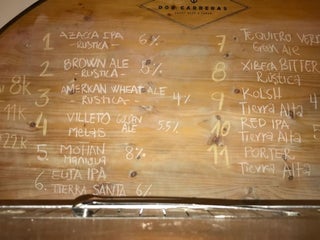 DOS CARRERAS
1 AZACCA IPA 6%
- RUSTICA -
2 BROWN ALE 5%
- RUSTICA -
3 AMERKAN WHEAT ALE
- RUSTICA - 4%
4 VILLETO GOLDEN ALE
MELAS 5.5%
5. MOHAN 8%
MANIGUA
6. ELITA IPA
TIERRA SANTA 6%
8K
11K
22K
7 TEQUITERO VERD
GREEN ALE
8 XIBECA BITTER
RUSTICA
9 KOLSH
TIERRA ALTA 4
10 RED IPA
TIERRA ALTA 5
11 PORTER
TIERRA ALTA